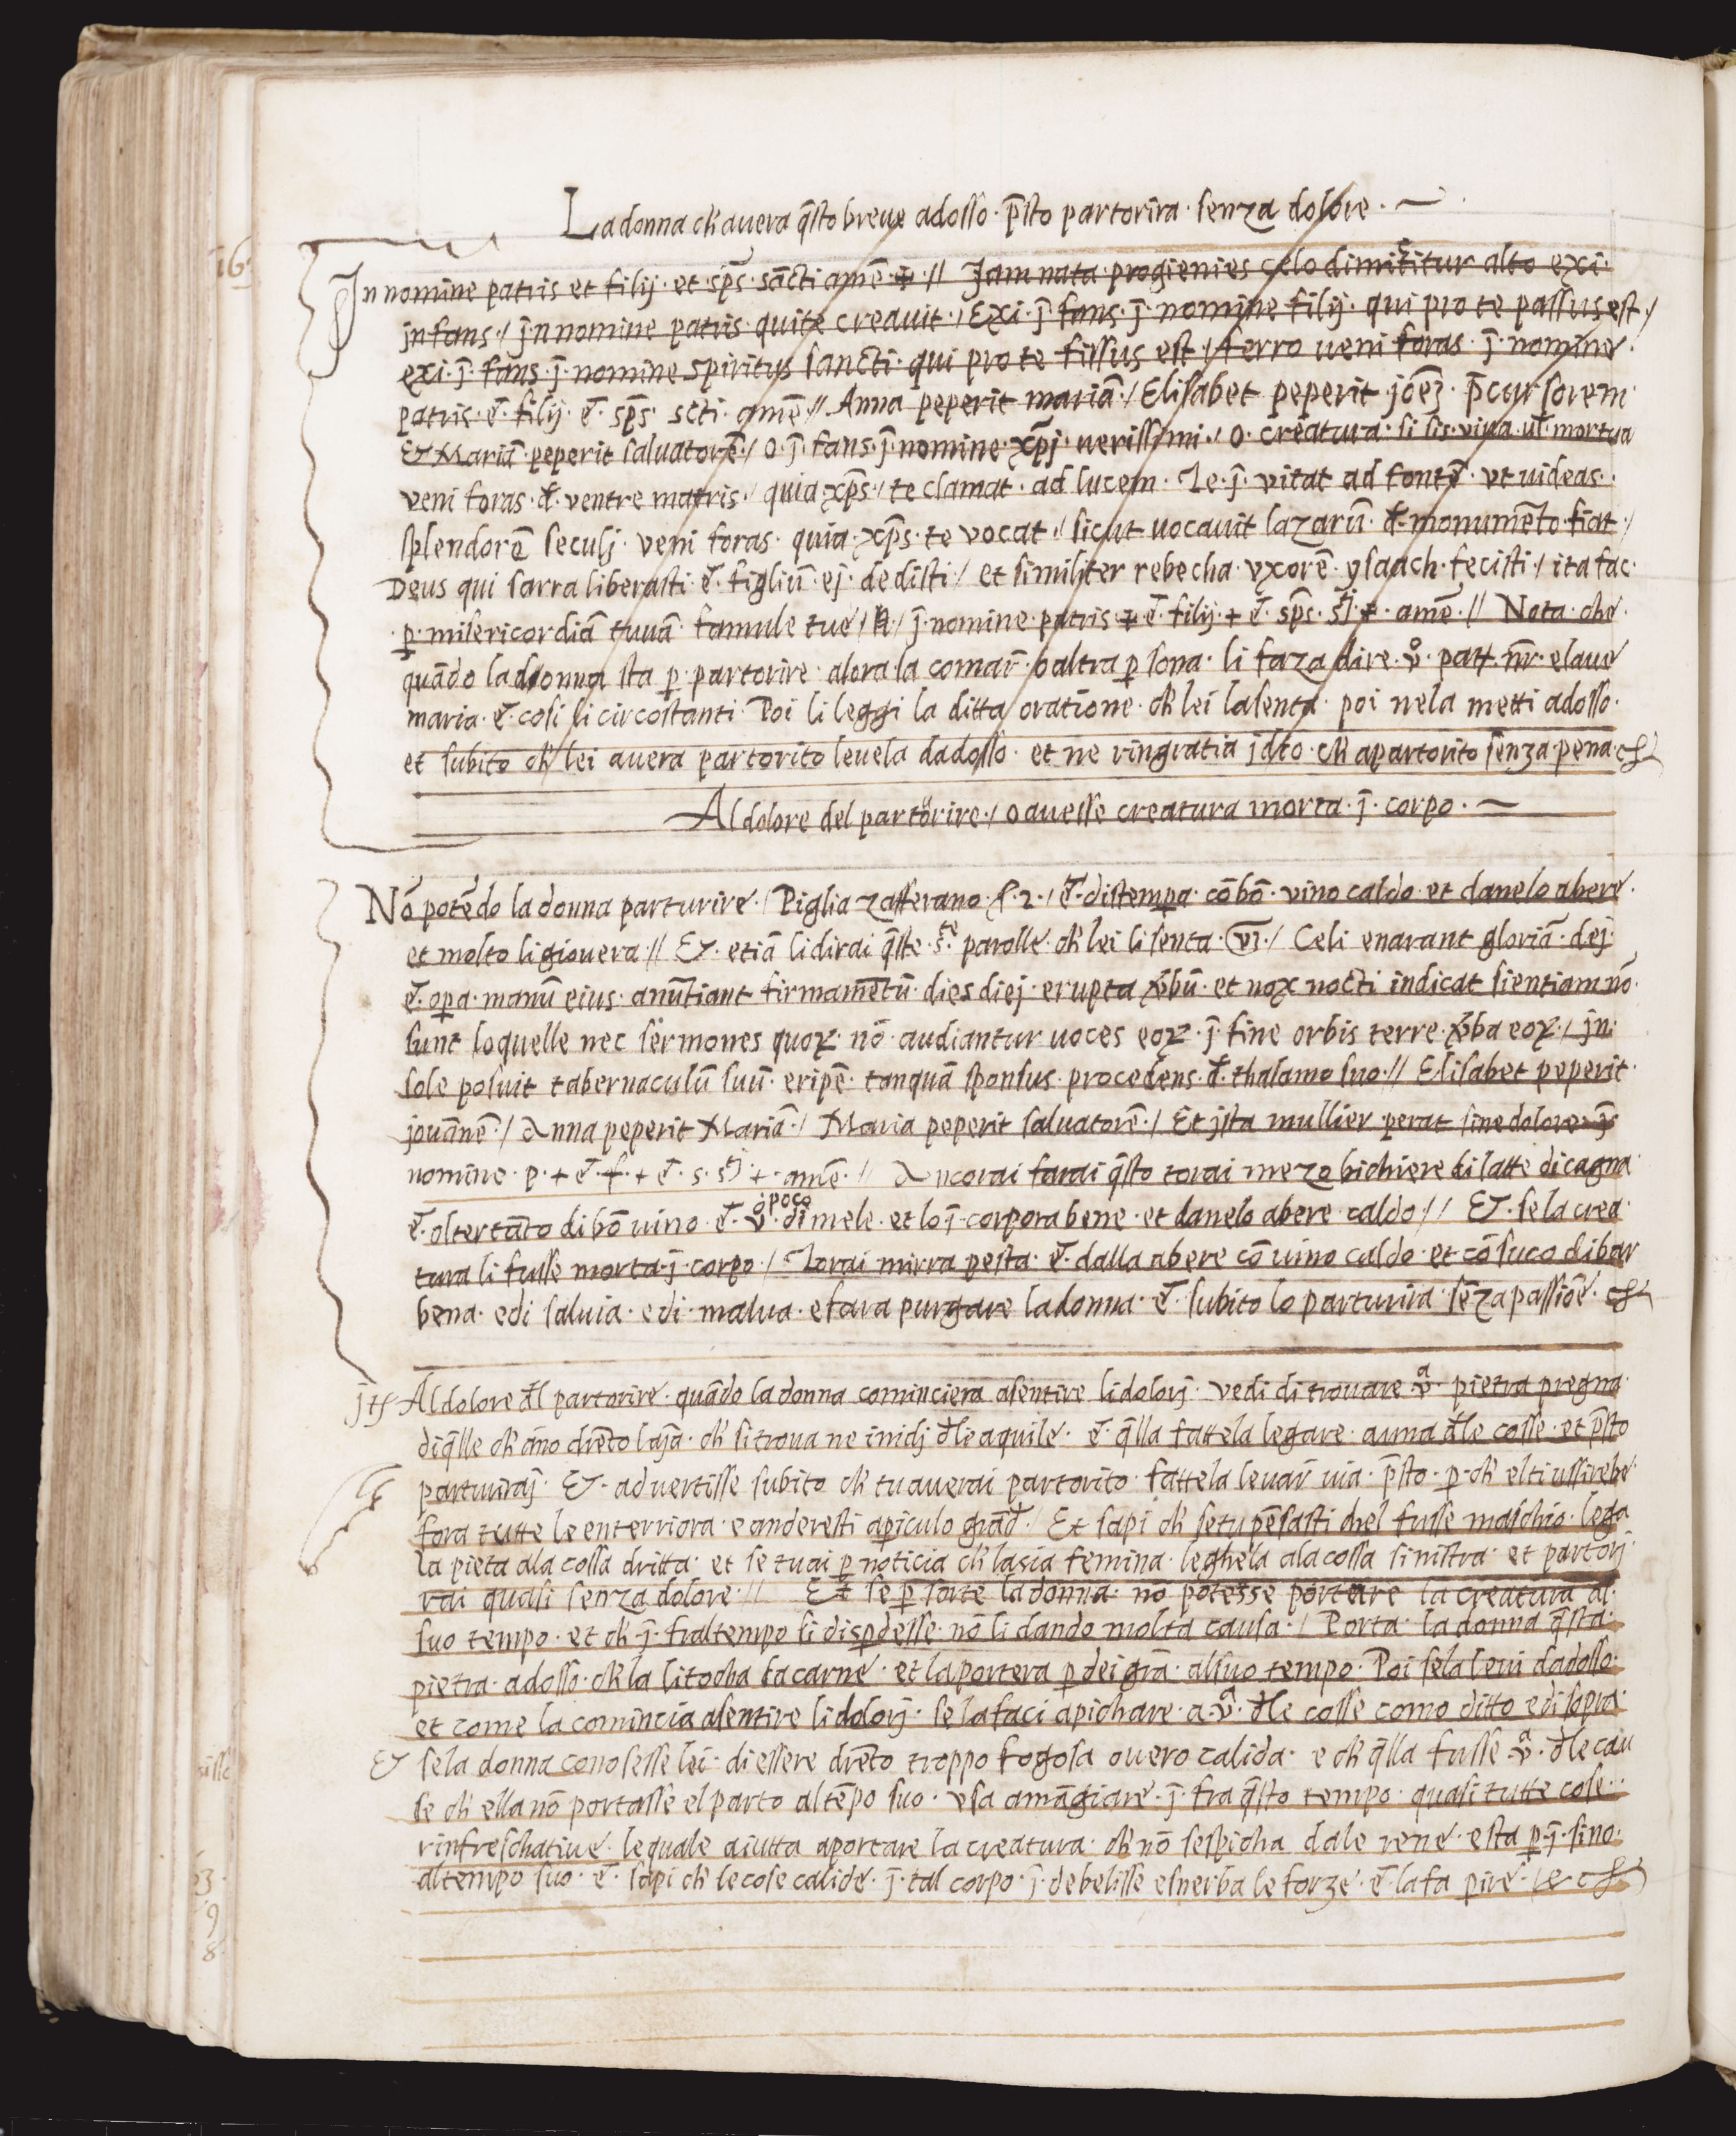 La donna ch' avera q̄sto breve adosso · p̄sto partorira · senza dolore · —
16
In nomine patris et filij · et sp̄s · sācti amē · + // Jam nata progienies celo dimittitur alto exi ·
jnfans · / jn nomine patris · qui te creavit · / Exi · j̄ fans · j̄ nomine filij · qui pro te passus est · /
exi · j̄ fans · j̄ nomine spiritus sancti · qui pro te fissus est · / ferro veni foras · j̄ nomine
patris · ē · filij · ē · sp̄s · scti · amē // Anna peperit mariā · / Elisabet peperit joēʒ · p̄cursorem
Et Mariā · peperit salvatorē / o · j̄ fans · j̄ nomine · xp̄j · verissimi · / o · creatura · si sis · viva · ul̄ · mortua
veni foras · đ · ventre matris · / quia · xp̄s · / te clamat · ad lucem · Te · j̄ · vitat ad fontē · vt videas ·
splendorē seculj · veni foras · quia · xp̄s · te vocat · / sicut vocavit lazarū · đ · monumēto · fiat · /
Deus qui sarra liberasti · ē · figliū · ej · dedisti / et similiter rebecha · vxorē · ysaach · fecisti · / ita fac ·
· p̱ · misericordiā tuuā · famule tue / N / j̄ · nomine · patris + ē · filij · + ē · sp̄s · s̄tj · + · amē · // Nota · che ·
quādo la donna sta p̱ · partorire · alora la comar̄ · o altra p̱sona · li faza dire · v̊ · pat̄r · nr̄ · e l ave
maria · ē · cosi li circostanti · Poi li leggi la ditta oratione · ch' lei la senta · poi nela metti adosso ·
et subito ch' lei avera partorito levela dadosso · et ne ringratia jdio · ch' a partorito senza pena ·
Al dolore del partorire · / o avesse creatura morta · j̄ · corpo · —
Nō potēdo la donna parturire · / Piglia zafferano · ʃ · 2 · / ē · distemp̱a · cō bō · vino caldo · et danelo a bere ·
et molto li giovera // Et · etiā li dirai q̄ste · s.te parolle · ch' lei li senta · vʒ · / Celi enarant gloriā · dej ·
ē · op̱a · manū eius · anūtiant firmamētū · dies diej · erupta v̄bū · et nox nocti indicat sientiam nō
sunt loquelle nec sermones quoꝝ · nō · audiantur voces eoꝝ · j̄ fine orbis terre · v̄ba eoꝝ · / jn ·
sole posuit tabernaculū suū · et ipē · tanquā sponsus · procedens · đ · thalamo suo · // Elisabet peperit
jovānē · / Anna peperit Mariā · / Maria peperit salvatorē · / Et jsta mullier perat sine dolore · j̄
nomine · p · + ē · f · + ē · s · s̄tj · + · amē · // Ancorai farai q̄sto torai mezo bichiere di latte di cagna
ē · oltertāto di bō vino · ē · v̊ · poco di mele · et lo j̄ · corpora bene · et danelo a bere · caldo · // Et · se la crea
tura li fusse morta · j̄ · corpo · / Torai mirra pesta · ē · dalla a bere cō vino caldo · et cō suco di bar
bena · e di salvia · e di · malva · e fara purgare la donna · ē · subito lo parturira · sēza passiōe ·
jtʃ Al dolore đl partorire · quādo la donna cominciera a sentire li dolorj · vedi di trovare · v̊ᵃ · pietra pregna
di q̄lle ch' āno drēto laj̄a · ch' si trova ne i nidj đle aquile · ē · q̄lla fattela legare · a una đle cosse · et p̄sto
parturiraj · Et · advertisse subito ch' tu averai partorito · fattela levar̄ via · p̄sto · p̱ · ch' el ti ussirebe
fora tutte le enterriora · e anderesti a p̱iculo grād̄ · / Et sapi ch' se tu pēsasti chel fusse maschio · lega
la pieta ala cossa dritta · et se tu ai p̱ noticia ch' la sia femina · leghela ala cossa sinistra · et partorj
rai quasi senza dolore · // Et se p̱ sorte la donna · nō potesse portare la creatura al ·
suo tempo · et ch' j̄ · fraltempo si disp̱desse · nō li dando molta causa · / Porta · la donna q̄sta ·
pietra · adosso · ch' la li tocha la carne · et la portera p̱ dei grā · al suo tempo · Poi se la levi dadosso ·
et come la comincia a sentire li dolorj · se la faci apichare · a · v̊ᵃ · đle cosse como ditto e di sopra ·
Et se la donna conosesse lei · di essere drēto troppo fogosa overo calida · e ch' q̄lla fusse · v̊ᵃ · đle cau
se ch' ella nō portasse el parto al tēpo suo · vsa a māgiare · j̄ · fra q̄sto tempo · quasi tutte cose ·
rinfreschative · le quale aiutta a portare la creatura · ch' nō se spicha dale rene · e sta p̱ · j̄ · sino ·
al tempo suo · ē · sapi ch' le cose calide · j̄ · tal corpo · j̄ · debelisse e snerba le forze · ē · la fa p̱ire ·